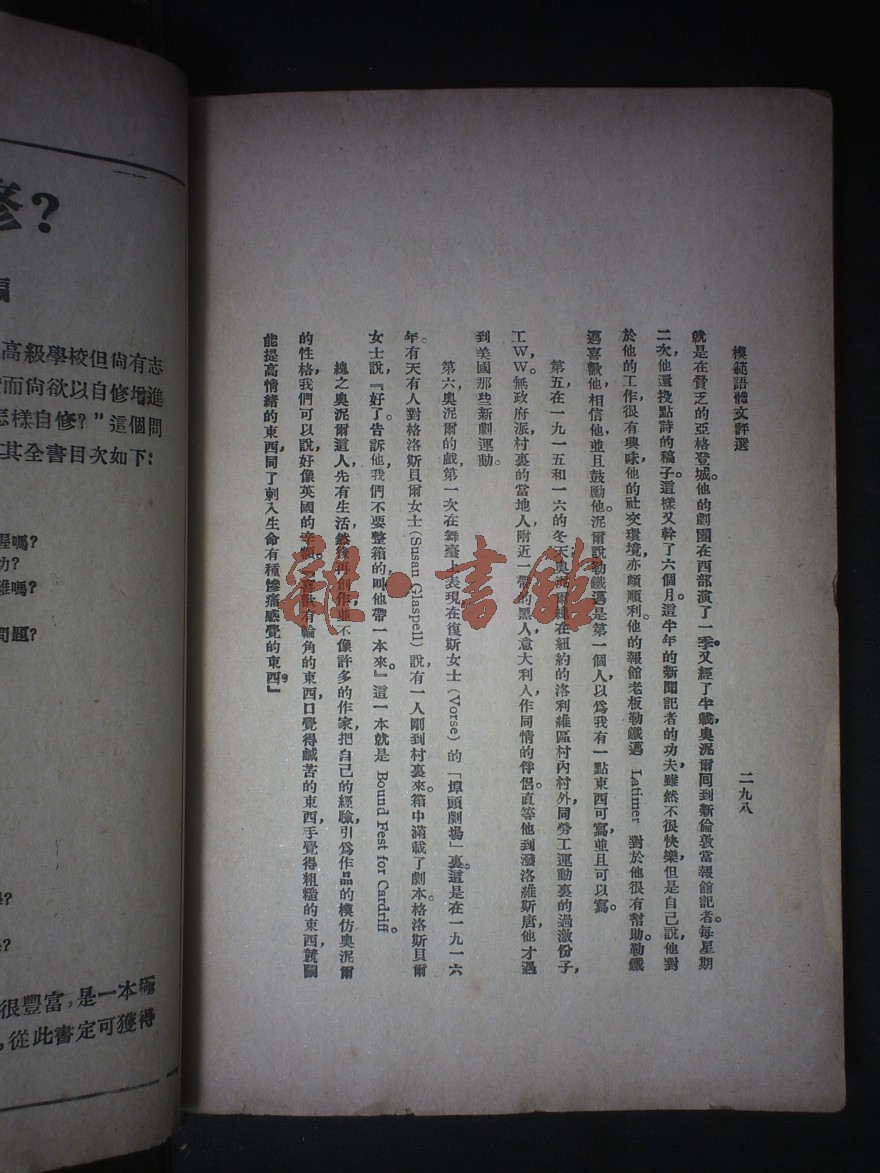 模範語體文評選
二九八
就是在贊乏的亞格登城。他的劇團在西部演了一季。又經了半載,奧泥爾囘到新倫敦當報館記者。每星期
二次,他還投點詩的稿子。這樣又幹了六個月。這半年的新聞記者的功夫,雖然不很快樂,但是自己說他對
於他的工作,很有興味,他的社交環境,亦頗順利。他的報館老板勒鐵邁 Latimer 對於他很有幫助。勒鐵
邁喜歡他,相信他,並且鼓勵他。泥爾說勒鐵邁是第一個人,以爲我有一點東西可寫,並且可以寫。
第五,在一九一五和一六的冬天,奧泥爾總在紐約的洛利維區村內村外,同勞工運動裏的過激份子,
工WW。無政府派村裏的當地人,附近一帶的黑人意大利人作同情的伴侶。直等他到潑洛維斯唐,他才遇
到美國那些新劇運動。
第六,奧泥爾的戲,第一次在舞臺上表現,在復斯女士(Vorse)的「埠頭劇場」裏。這是在一九一六
年。有天有人對格洛斯貝爾女士(Susan Glaspell)說,有一人剛到村裏來。箱中滿載了劇本。格洛斯貝爾
女士說,『好了。告訴他,我們不要整箱的,叫他帶一本來』。這一本就是 Bound Fest for Cardriff。
總之,奧泥爾這人,先有生活,然後再創作,並不像許多的作家,把自己的經驗,引爲作品的模仿。奧泥爾
的性格,我們可以說,好像英國的辛頓。『喜歡有輪角的東西,口覺得鹹苦的東西,手覺得粗糙的東西,
能提高情緒的東西,同了刺入生命有種慘痛感覺的東西。』
修?
編
高級學校但尙有志
而尙欲以自修增進
怎樣自修?”這個問
其全書目次如下:
嗎?
功?
難嗎?
問題?
很豐富,是一本極
,從此書定可獲得
雜·書館